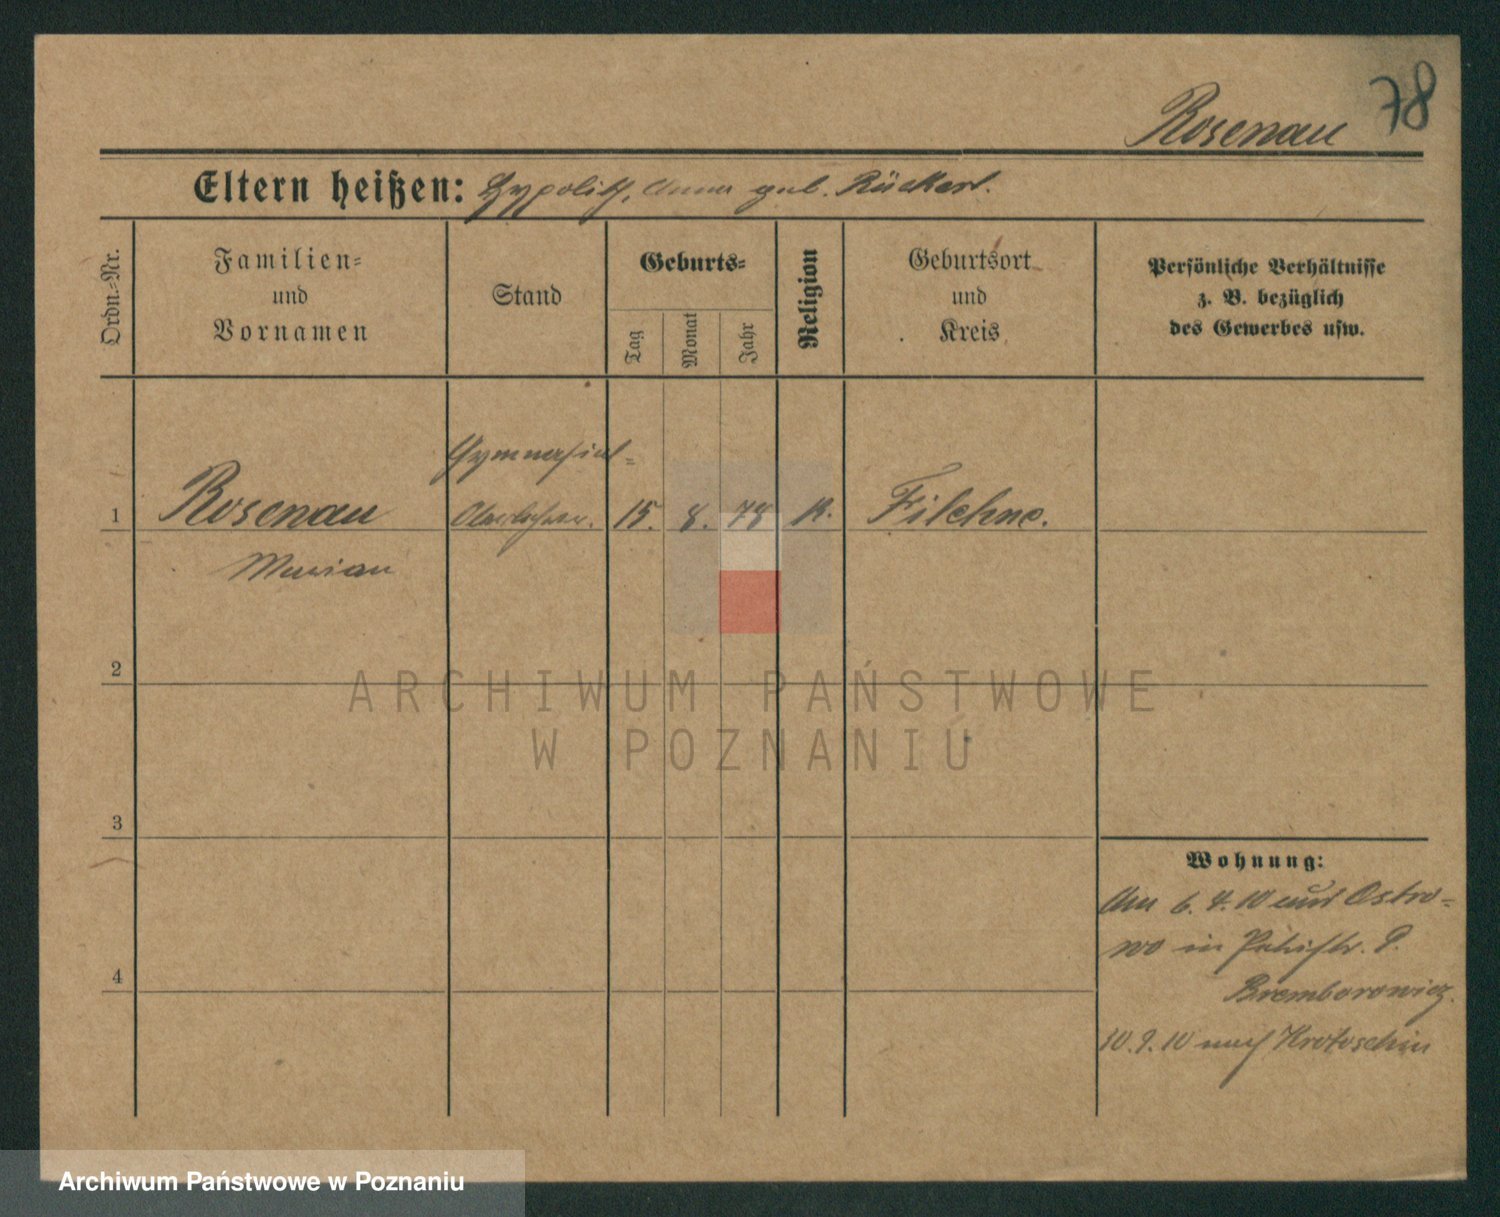 78
Rosenau
Eltern heißen: Hypolith, Anna geb. Rückert.
Ordn.-Nr.
Familien-
und
Vornamen
Stand
Geburts-
Tag
Monat
Jahr
Religion
Geburtsort
und
Kreis
Persönliche Verhältnisse
z. B. bezüglich
des Gewerbes usw.
Gymnasial-
1 Rosenau Oberlehrer. 15. 8. 78 K. Filehne.
Marian
2
ARCHIWUM PAŃSTWOWE
W POZNANIU
3
Wohnung:
Am 6. 4. 10 aus Ostro-
wo in
Bremborowicz.
4
30. 9. 10 nach Krotoschin
Archiwum Państwowe w Poznaniu